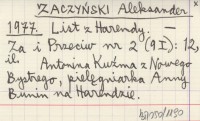 ZACZYŃSKI Aleksander
1977. List z Harendy. —
Za i Przeciw nr 2 (9 I): 12,
il.
Antonina Kuźma z Nowego
Bystrego, pielęgniarka Anny
Bunin na Harendzie.